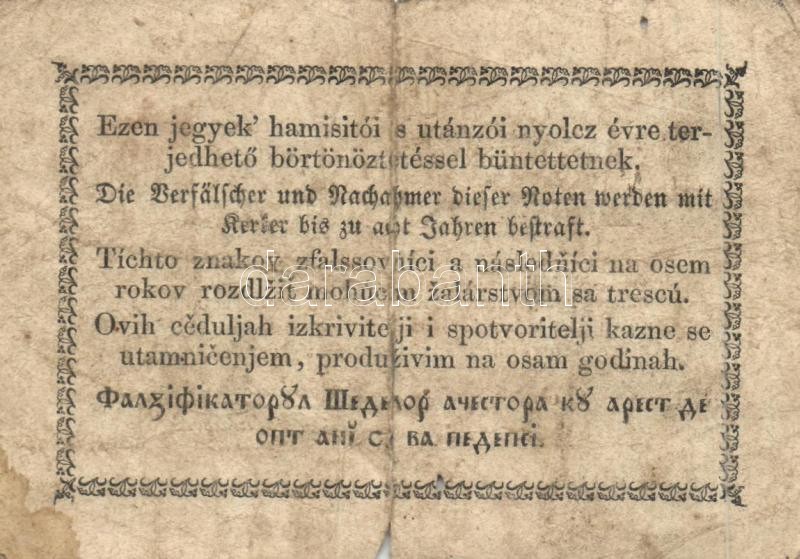 Ezen jegyek' hamisitói s utánzói nyolcz évre ter-
jedhető börtönöztetéssel büntettetnek.
Die Verfälscher und Nachahmer dieser Noten werden mit
Kerker bis zu acht Jahren bestraft.
Tíchto znakov zfalssovňíci a následňíci na osem
rokov rozdlžit mohúcím žalárstvom sa trescú.
Ovih cěduljah izkrivitelji i spotvoritelji kazne se
utamničenjem, produživim na osam godinah.
Фалзіфікаторꙋл Шеделор ачестора кꙋ арест де
опт ані ва педепсі.
databanth